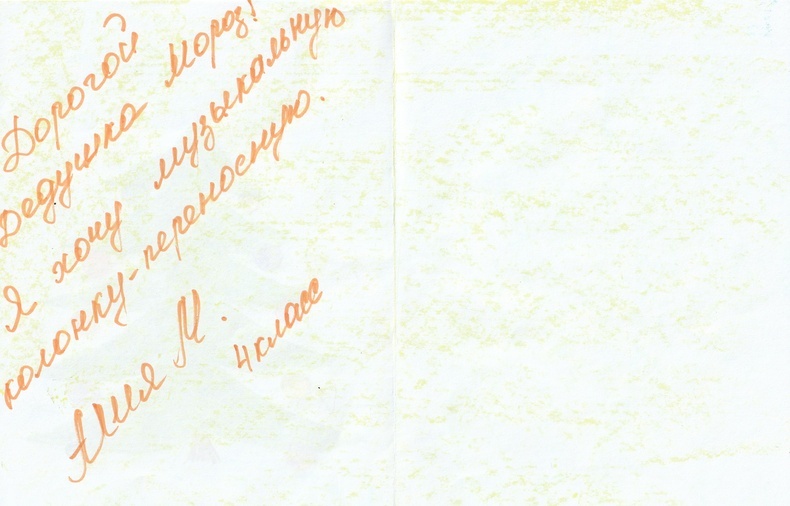 Дорогой
Дедушка Мороз!
Я хочу музыкальную
колонку-переносную.
Аня М.
4 класс